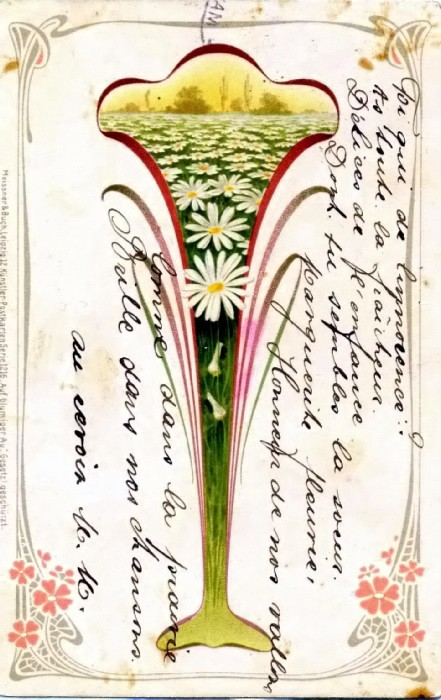 Toi qui de l'innocence
As toute la fraîcheur
Délices de l'enfance
Dont tu sembles la soeur.
Marguerite fleurie,
Honneur de nos vallons
Comme dans la prairie
Brille dans nos chansons.
au revoir M. M.
Meissner & Buch, Leipzig 12 Künstler-Postkarten Serie 1216. "Auf blumiger Au". Gesetzl. geschützt.
AM